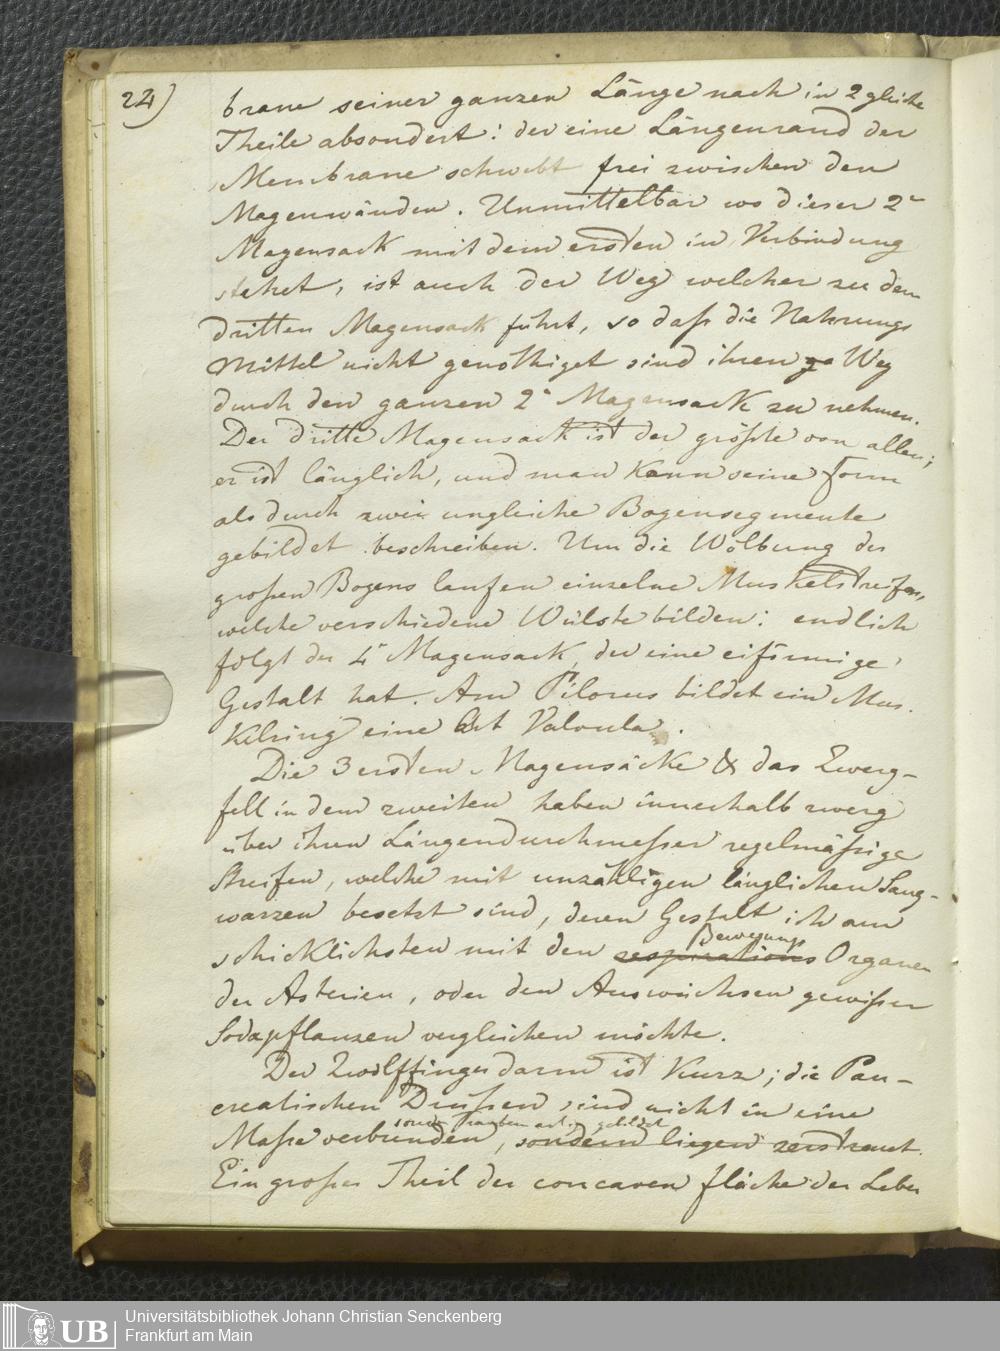 24)
brane seiner ganzen Länge nach in 2 gleiche
Theile absondert: der eine Längenrand der
Membrane schwebt frei zwischen den
Magenwänden. Unmittelbar wo dieser 2r
Magensack mit dem ersten in Verbindung
stehet, ist auch der Weg welcher zu dem
dritten Magensack führt, so daß die Nahrungs
Mittel nicht genöthiget sind ihren Weg
durch den ganzen 2n Magensack zu nehmen.
Der dritte Magensack ist der größte von allen;
er ist länglich, und man kann seine Form
als durch zwei ungleiche Bogensegmente
gebildet beschreiben. Um die Wölbung des
großen Bogens laufen einzelne Muskelstreifen,
welche verschiedene Wülste bilden: endlich
folgt der 4r Magensack, der eine eiförmige
Gestalt hat. Am Pilorus bildet ein Mus-
kelring eine Art Valvula.
Die 3 ersten Magensäcke & das Zwerg-
fell in dem zweiten haben innerhalb zwerg
über ihren Längendurchmesser regelmäßige
Streifen, welche mit unzähligen länglichen Saug-
warzen besetzt sind, deren Gestalt ich am
Bewegungs
schicklichsten mit den respirations Organen
der Asterien, oder den Auswüchsen gewisser
Sodapflanzen vergleichen möchte.
Der Zwölffingerdarm ist kurz; die Pan-
creatischen Drüßen sind nicht in eine
traubenartig gebildet
Maße verbunden, sondern liegen zerstreut.
Ein großer Theil der concaven fläche der Leber
UB
Universitätsbibliothek Johann Christian Senckenberg
Frankfurt am Main